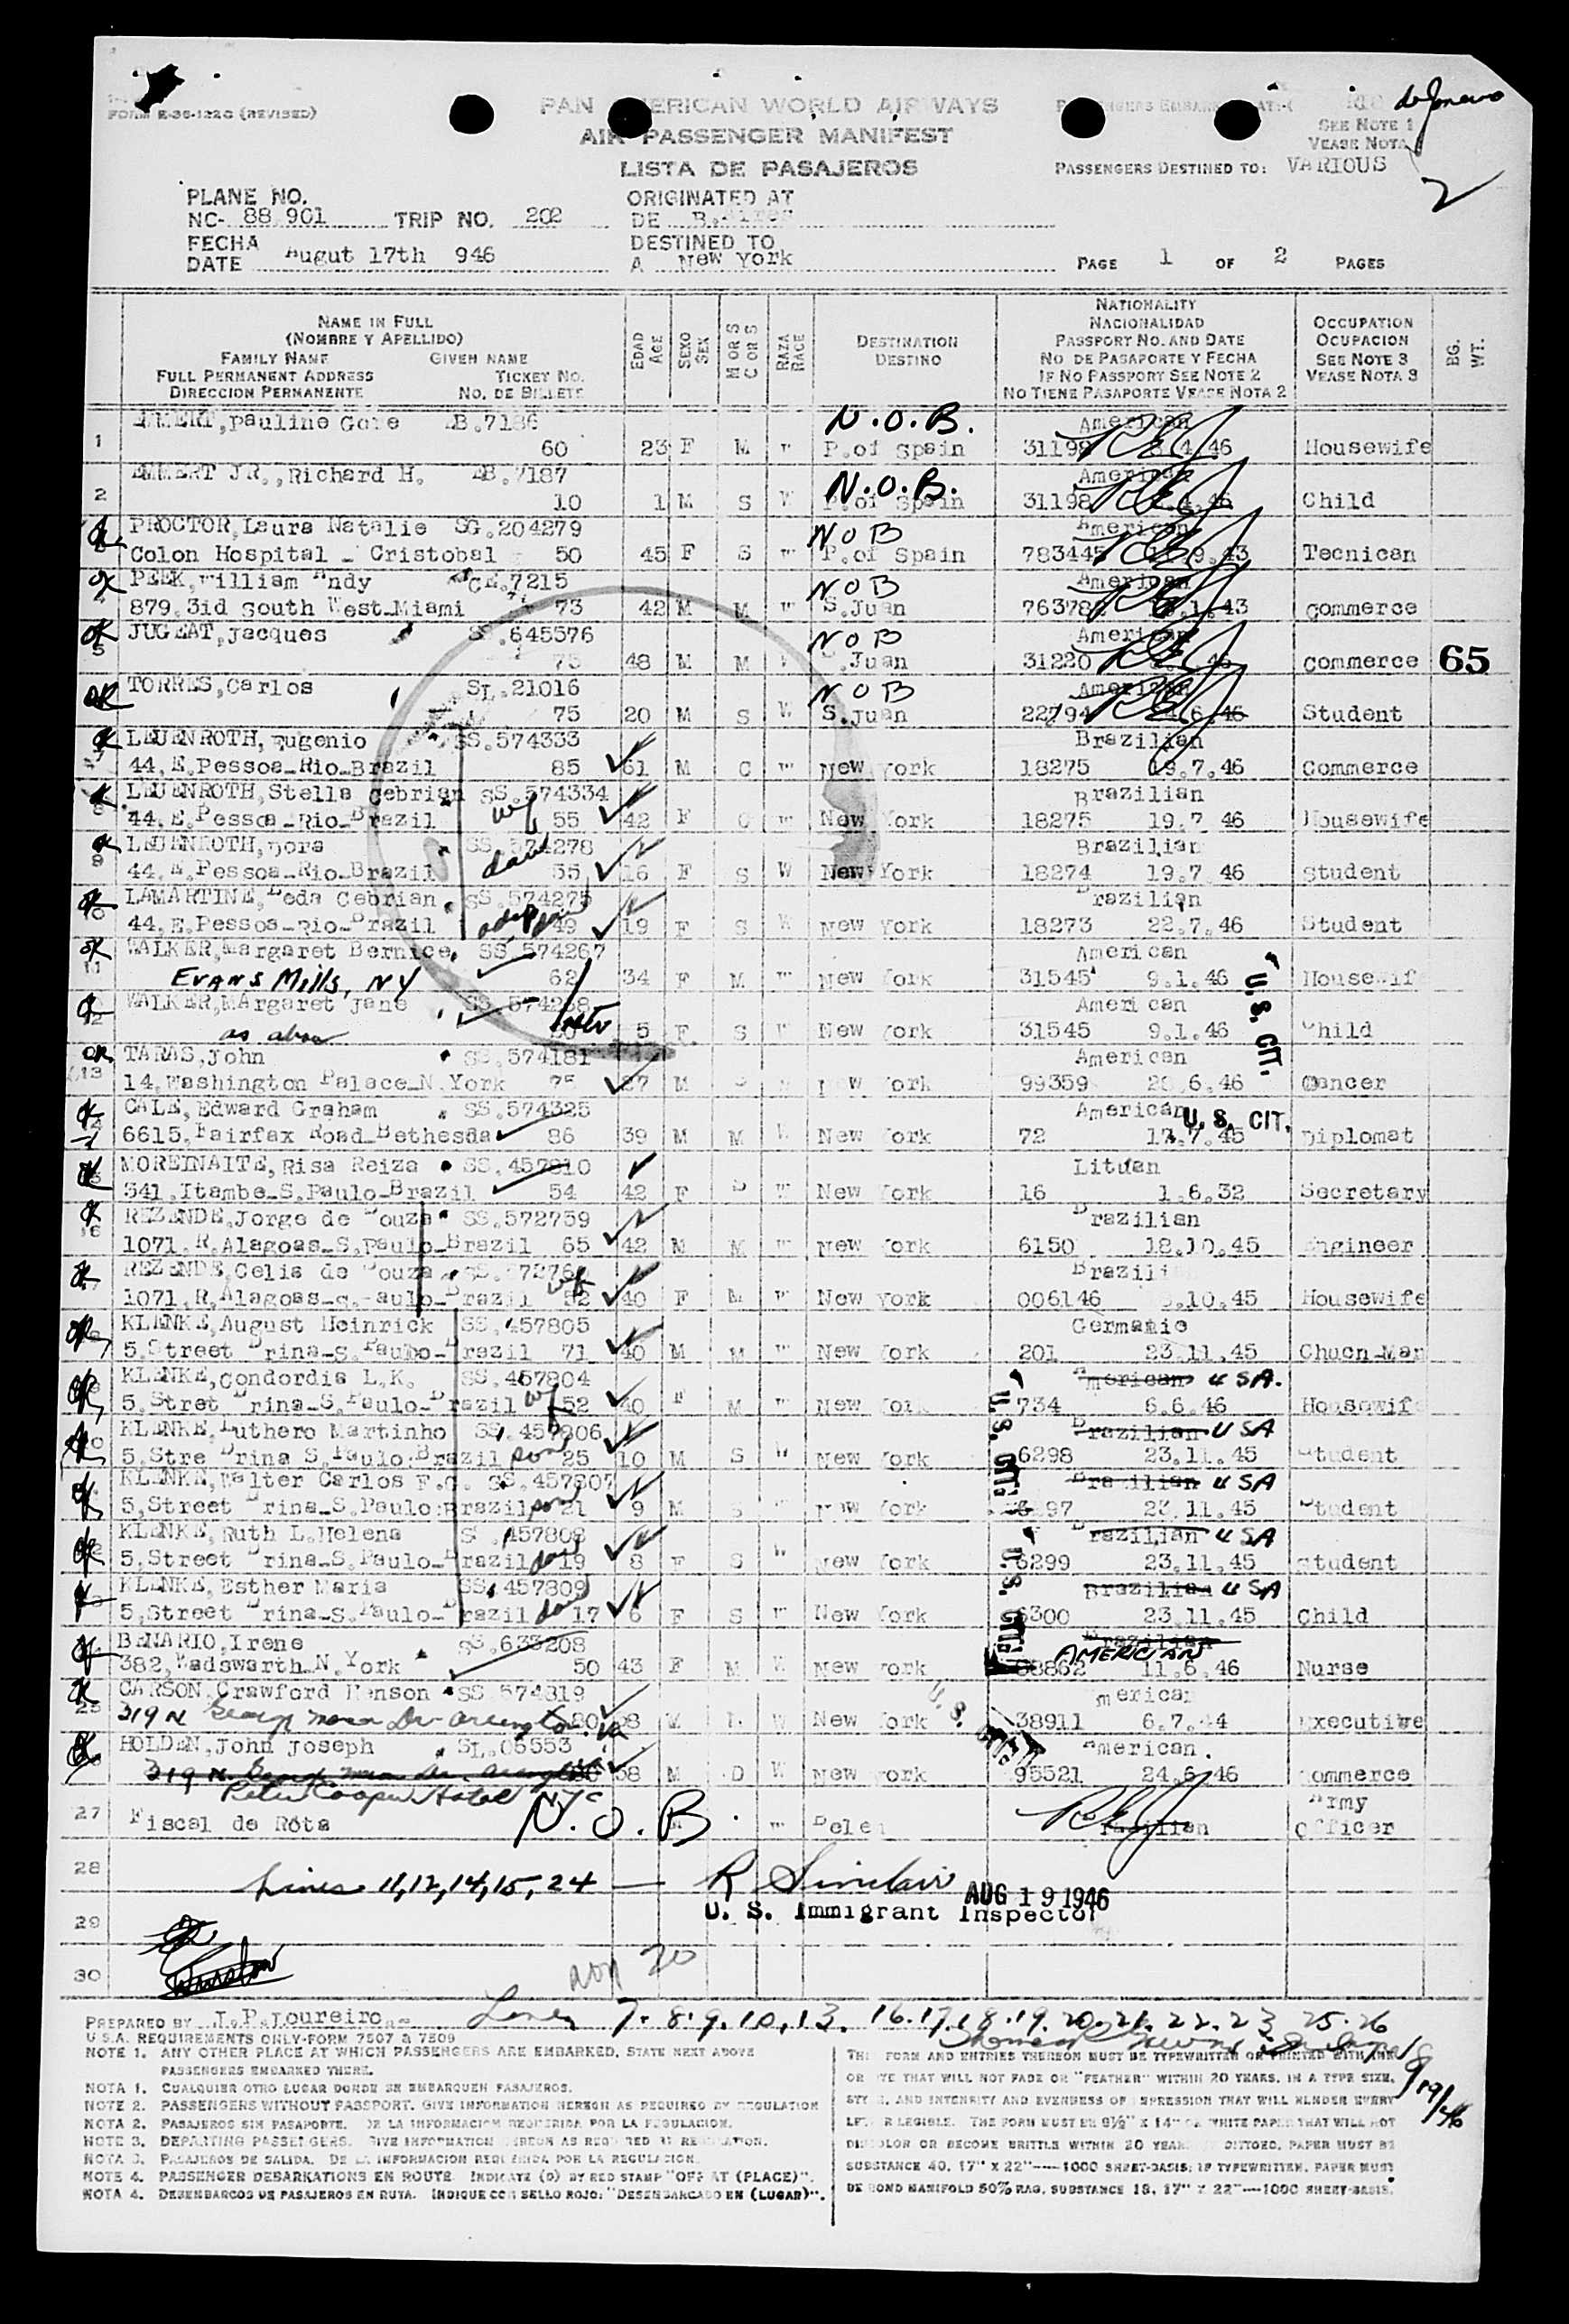 FORM E-36-122C (REVISED)
PAN AMERICAN WORLD AIRWAYS
AIR PASSENGER MANIFEST
LISTA DE PASAJEROS
de Janeiro
SEE NOTE 1
VEASE NOTA
PASSENGERS DESTINED TO: VARIOUS
2
PLANE NO.
NC- 88.901 TRIP NO. 202
ORIGINATED AT
DE B.Aires
FECHA
DATE Augut 17th 946
DESTINED TO
A New York
PAGE 1 OF 2 PAGES
NAME IN FULL
(NOMBRE Y APELLIDO)
FAMILY NAME GIVEN NAME
FULL PERMANENT ADDRESS TICKET NO.
DIRECCION PERMANENTE NO. DE BILLETE
EDAD AGE
SEXO SEX
M OR S C OR S
RAZA RACE
DESTINATION
DESTINO
NATIONALITY
NACIONALIDAD
PASSPORT NO. AND DATE
NO DE PASAPORTE Y FECHA
IF NO PASSPORT SEE NOTE 2
NO TIENE PASAPORTE VEASE NOTA 2
OCCUPATION
OCUPACION
SEE NOTE 3
VEASE NOTA 3
BG. WT.
EMMERT, Pauline Gore EB.7186 N.O.B. American
1 60 23 F M W P.of Spain 31198 46 Housewife
EMMERT JR., Richard H. EB.7187 N.O.B. American
2 10 1 M S W P.of Spain 31198 46 Child
ok PROCTOR, Laura Natalie SG.204279 NOB American
Colon Hospital - Cristobal 50 45 F S W P.of Spain 783445 9.43 Tecnican
ok PEEK, William Andy 7215 NOB American
879.3id South West-Miami 73 42 M M W S.Juan 76378 1.43 Commerce
ok JUGEAT, Jacques SS.645576 NOB American
5 75 48 M M W S.Juan 31220 46 Commerce 65
ok TORRES, Carlos SL.21016 NOB American
75 20 M S W S.Juan 22794 6.46 Student
ok LEUENROTH, Eugenio SS.574333 Brazilian
44.E.Pessoa-Rio-Brazil 85 61 M C W New York 18275 19.7.46 Commerce
ok LEUENROTH, Stella Cebrian SS.574334 Brazilian
8 44.E.Pessoa-Rio-Brazil wf 55 42 F C W New York 18275 19.7 46 Housewife
ok LEUENROTH, Dora SS.574278 Brazilian
9 44.E.Pessoa-Rio-Brazil dau 55 16 F S W New York 18274 19.7 46 Student
ok LAMARTINE, Leda Cebrian SS.574275 Brazilian
44.E.Pessoa-Rio-Brazil adop dau 49 19 F S W New York 18273 22.7.46 Student
ok WALKER, Margaret Bernice. SS.574267 American
11 EVANS Mills, NY 62 34 F M W New York 31545 9.1.46 Housewif
U. S. CIT.
ok WALKER, MArgaret Jane SS.574268 American
as above 5 F S W New York 31545 9.1.46 Child
ok TARAS, John SS.574181 American
13 14.Washington Palace-N.York 75 27 M New York 99359 6.46 Dancer
ok CALE, Edward Graham SS.574325 American U. S. CIT.
6615.Fairfax Road-Bethesda 86 39 M M W New York 72 17.7.45 Diplomat
ok MOREINAITE, Risa Reiza SS.457810 Lituan
341.Itambe-S.Paulo-Brazil 54 42 F S W New York 16 1.6.32 Secretary
ok REZENDE, Jorge de Souza SS.572759 Brazilian
1071.R.Alagoas-S.Paulo-Brazil 65 42 M M W New York 6150 18.10.45 Engineer
ok REZENDE, Celia de Souza Brazili
1071.R.Alagoas-S.Paulo-Brazil wf 52 40 F M W New York 006146 .10.45 Housewife
ok KLENKE, August Heinrick SS.457805 Germanic
5.Street Brina-S.Paulo-Brazil 71 40 M M W New York 201 23.11.45 Chucn-Man
ok KLENKE, Condordia L.K. SS.457804 American USA.
5.Stret Brina-S.Paulo-Brazil wf 52 40 F M W New York 734 6.6.46 Housewife
U. S. CIT.
ok KLENKE, Luthero Martinho SS.457806 Brazilian USA
5.Stre Brina S.Paulo.Brazil son 25 10 M S W New York 6298 23.11.45 Student
ok KLENKE, Walter Carlos F.G. SS.457807 Brazilian USA
5,Street Brina-S.Paulo:Brazil son 21 9 M S New York 97 23.11.45 Student
ok KLENKE, Ruth L.Helena 457808 Brazilian USA
5,Street Brina-S.Paulo-Brazil dau 19 8 F S W New York 6299 23.11.45 Student
U. S. CIT.
KLENKE, Esther Maria SS.457809 Brazilian USA
5,Street Brina-S.Paulo-Brazil dau 17 6 F S W New York 6300 23.11.45 Child
ok BENARIO, Irene SS.633208 Brazilian AMERICIAN
382.Wadswarth-N.York 50 43 F M W New York 11.6.46 Nurse
ok CARSON, Crawford Henson SS 574319 merican
25 319 N George Mason Dr Arlington Va 80 8 M W New York 38911 6.7.44 Executive
ok HOLDEN, John Joseph SL.06553 American.
319 N. George Mason Dr. Arlington 58 M D W New York 95521 24.6.46 Commerce
Peter Cooper Hotel NYC
27 Fiscal de Rota N.O.B. W Belem Brazilian Army Officer
28 Lines 11,12,14,15,24 — R Sinclair AUG 19 1946
U. S. Immigrant Inspector
29 ok
30
PREPARED BY J.P.Loureiro.- Lines 7.8.9.10.13.16.17.18.19.20.21.22.23 25.26
8/19/46
U S A. REQUIREMENTS ONLY-FORM 7507 & 7509
NOTE 1. ANY OTHER PLACE AT WHICH PASSENGERS ARE EMBARKED, STATE NEXT ABOVE
PASSENGERS EMBARKED THERE.
NOTA 1. CUALQUIER OTRO LUGAR DONDE SE EMBARQUEN PASAJEROS.
NOTE 2. PASSENGERS WITHOUT PASSPORT. GIVE INFORMATION HEREON AS REQUIRED BY REGULATION
NOTA 2. PASAJEROS SIN PASAPORTE. DE LA INFORMACION REQUERIDA POR LA REGULACION.
NOTE 3. DEPARTING PASSENGERS. GIVE INFORMATION HEREON AS REQUIRED BY REGULATION.
NOTA 3. PASAJEROS DE SALIDA. DE LA INFORMACION REQUERIDA POR LA REGULACION.
NOTE 4. PASSENGER DEBARKATIONS EN ROUTE. INDICATE (D) BY RED STAMP "OFF AT (PLACE)".
NOTA 4. DESEMBARCOS DE PASAJEROS EN RUTA. INDIQUE CON SELLO ROJO: "DESEMBARCADO EN (LUGAR)".
THE FORM AND ENTRIES THEREON MUST BE TYPEWRITTEN OR PRINTED WITH INK
OR DYE THAT WILL NOT FADE OR "FEATHER" WITHIN 20 YEARS, IN A TYPE SIZE,
STYLE, AND INTENSITY AND EVENNESS OF IMPRESSION THAT WILL RENDER EVERY
LETTER LEGIBLE. THE FORM MUST BE 8½" X 14" ON WHITE PAPER THAT WILL NOT
DISCOLOR OR BECOME BRITTLE WITHIN 20 YEARS. DITTOED, PAPER MUST BE
SUBSTANCE 40, 17" X 22"----1000 SHEET-BASIS; IF TYPEWRITTEN, PAPER MUST
BE BOND MANIFOLD 50% RAG, SUBSTANCE 18, 17" X 22"---1000 SHEET-BASIS.